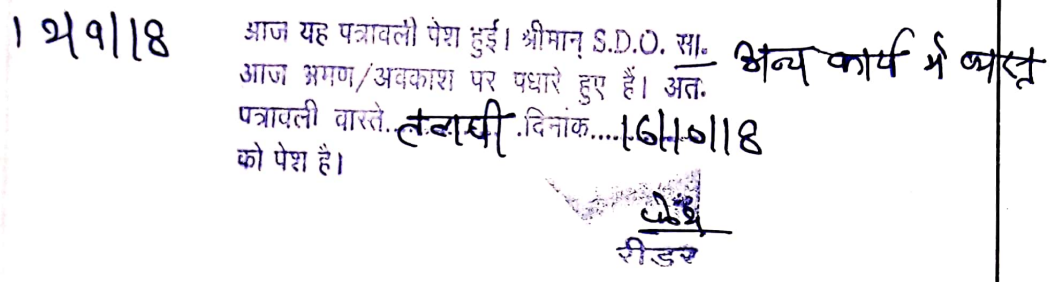 12/9/18
आज यह पत्रावली पेश हुई। श्रीमान् S.D.O. सा. अन्य कार्य में व्यस्त
आज भ्रमण/अवकाश पर पधारे हुए हैं। अतः
पत्रावली वास्ते..तलबी.दिनांक....16/10/18
को पेश है।
रीडर